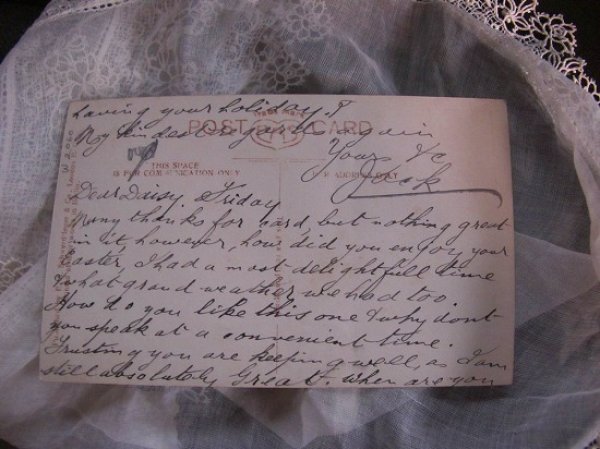 having your holiday?
My kindest regards again
POST CARD
Yours &c
THIS SPACE
IS FOR COMMUNICATION ONLY
ADDRESS ONLY
Jack
Dear Daisy. Friday
Many thanks for card, but nothing great
in it, however, how did you enjoy your
Easter, I had a most delightfull time
& what grand weather we had too.
How do you like this one & why dont
you speak at a convenient time.
Trusting you are keeping well, as I am
still absolutely Great. When are you